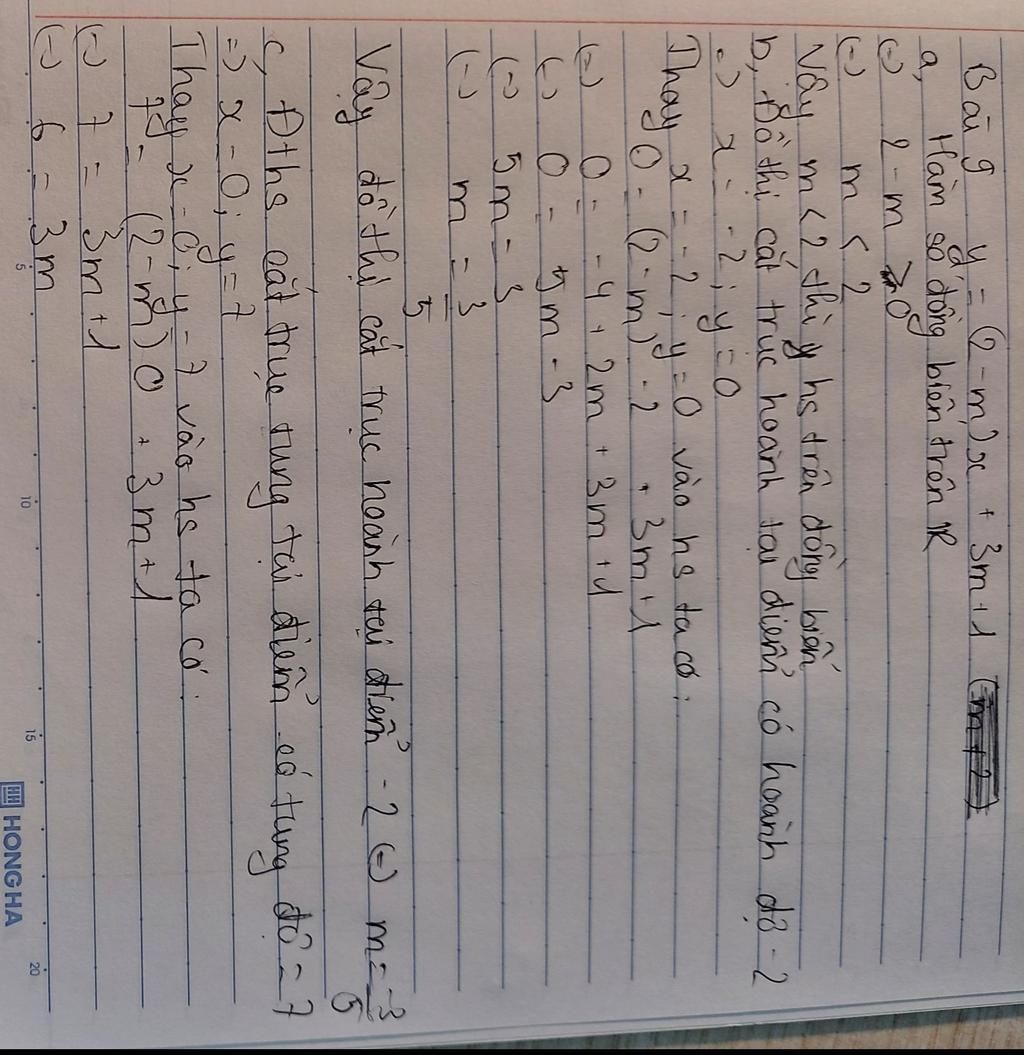 Bài 9 y = (2-m)x + 3m+1
a, Hàm số đồng biến trên R
(=) 2-m > 0
(=) m < 2
Vậy m < 2 thì hs trên đồng biến
b, Đồ thị cắt trục hoành tại điểm có hoành độ -2
=) x = -2; y = 0
Thay x = -2; y = 0 vào hs ta có:
0 = (2-m) -2 + 3m+1
(=) 0 = -4 + 2m + 3m +1
(=) 0 = 5m - 3
(=) 5m = 3
(=) m = 3
5
Vậy đồ thị cắt trục hoành tại điểm -2 (=) m = 3
5
c, Đths cắt trục tung tại điểm có tung độ = 7
=) x = 0; y = 7
Thay x = 0; y = 7 vào hs ta có:
7 = (2-m) 0 + 3m+1
(=) 7 = 3m+1
(=) 6 = 3m
5 10 15 20
HONG HA